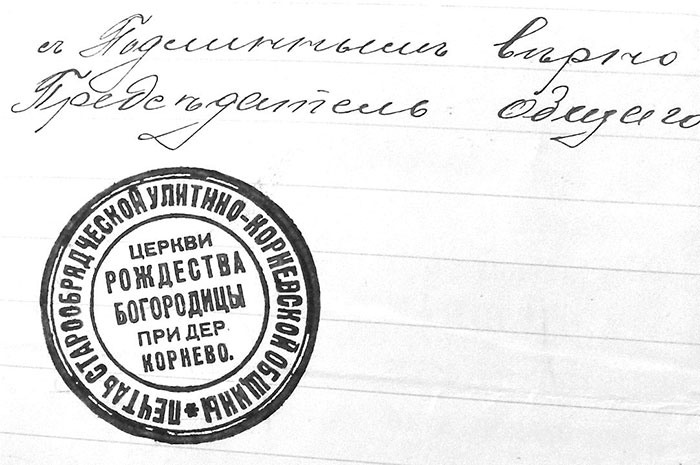 съ Подлиннымъ вѣрно
Предсѣдатель общаго
ПЕЧТАЬ СТАРООБРЯДЧЕСКОЙ УЛИТИНО-КОРНЕВСКОЙ ОБЩИНЫ
ЦЕРКВИ
РОЖДЕСТВА
БОГОРОДИЦЫ
ПРИ ДЕР.
КОРНЕВО.